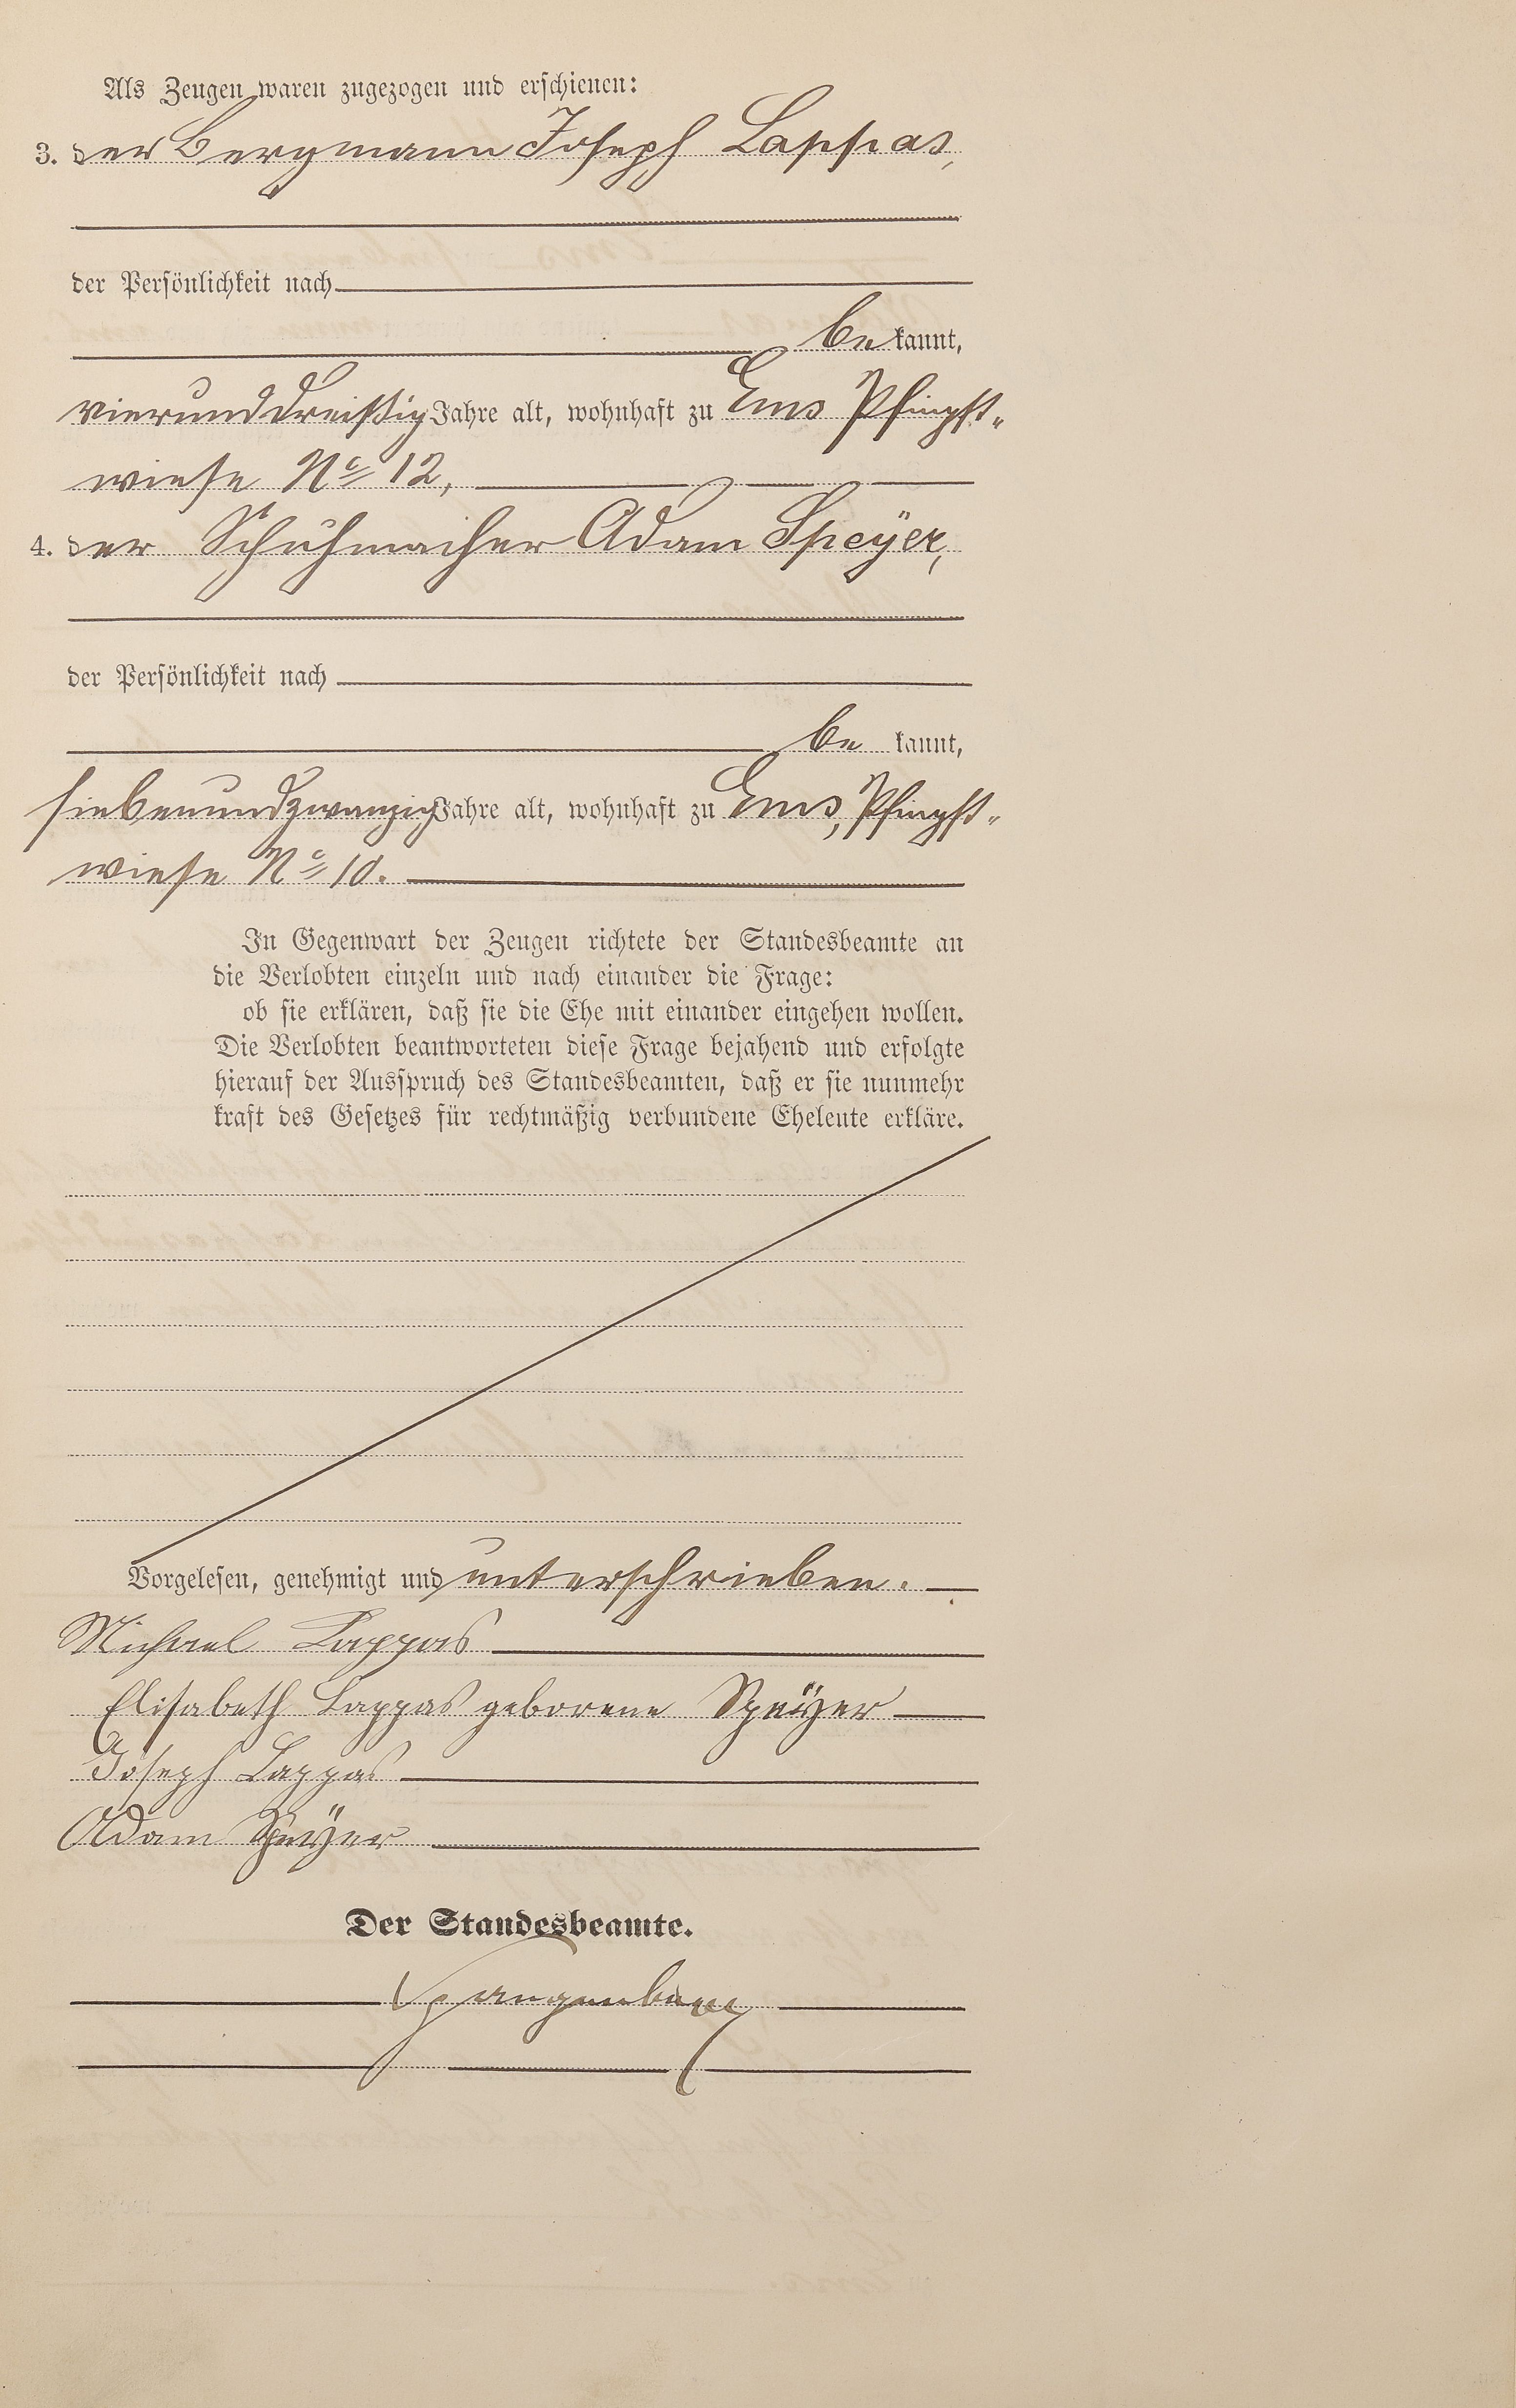 Als Zeugen waren zugezogen und erschienen:
3. der Bergmann Joseph Lappas,
der Persönlichkeit nach
be kannt,
vierunddreißig Jahre alt, wohnhaft zu Ems Pfingst-
wiese No 12,
4. der Schuhmacher Adam Speÿer,
der Persönlichkeit nach
be kannt,
siebenundzwanzig Jahre alt, wohnhaft zu Ems, Pfingst-
wiese No 10.
In Gegenwart der Zeugen richtete der Standesbeamte an
die Verlobten einzeln und nach einander die Frage:
ob sie erklären, daß sie die Ehe mit einander eingehen wollen.
Die Verlobten beantworteten diese Frage bejahend und erfolgte
hierauf der Ausspruch des Standesbeamten, daß er sie nunmehr
kraft des Gesetzes für rechtmäßig verbundene Eheleute erkläre.
Vorgelesen, genehmigt und unterschrieben.
Michael Lappas
Elisabeth Lappas geborene Speÿer
Joseph Lappas
Adam Speÿer
Der Standesbeamte.
Spangenberg